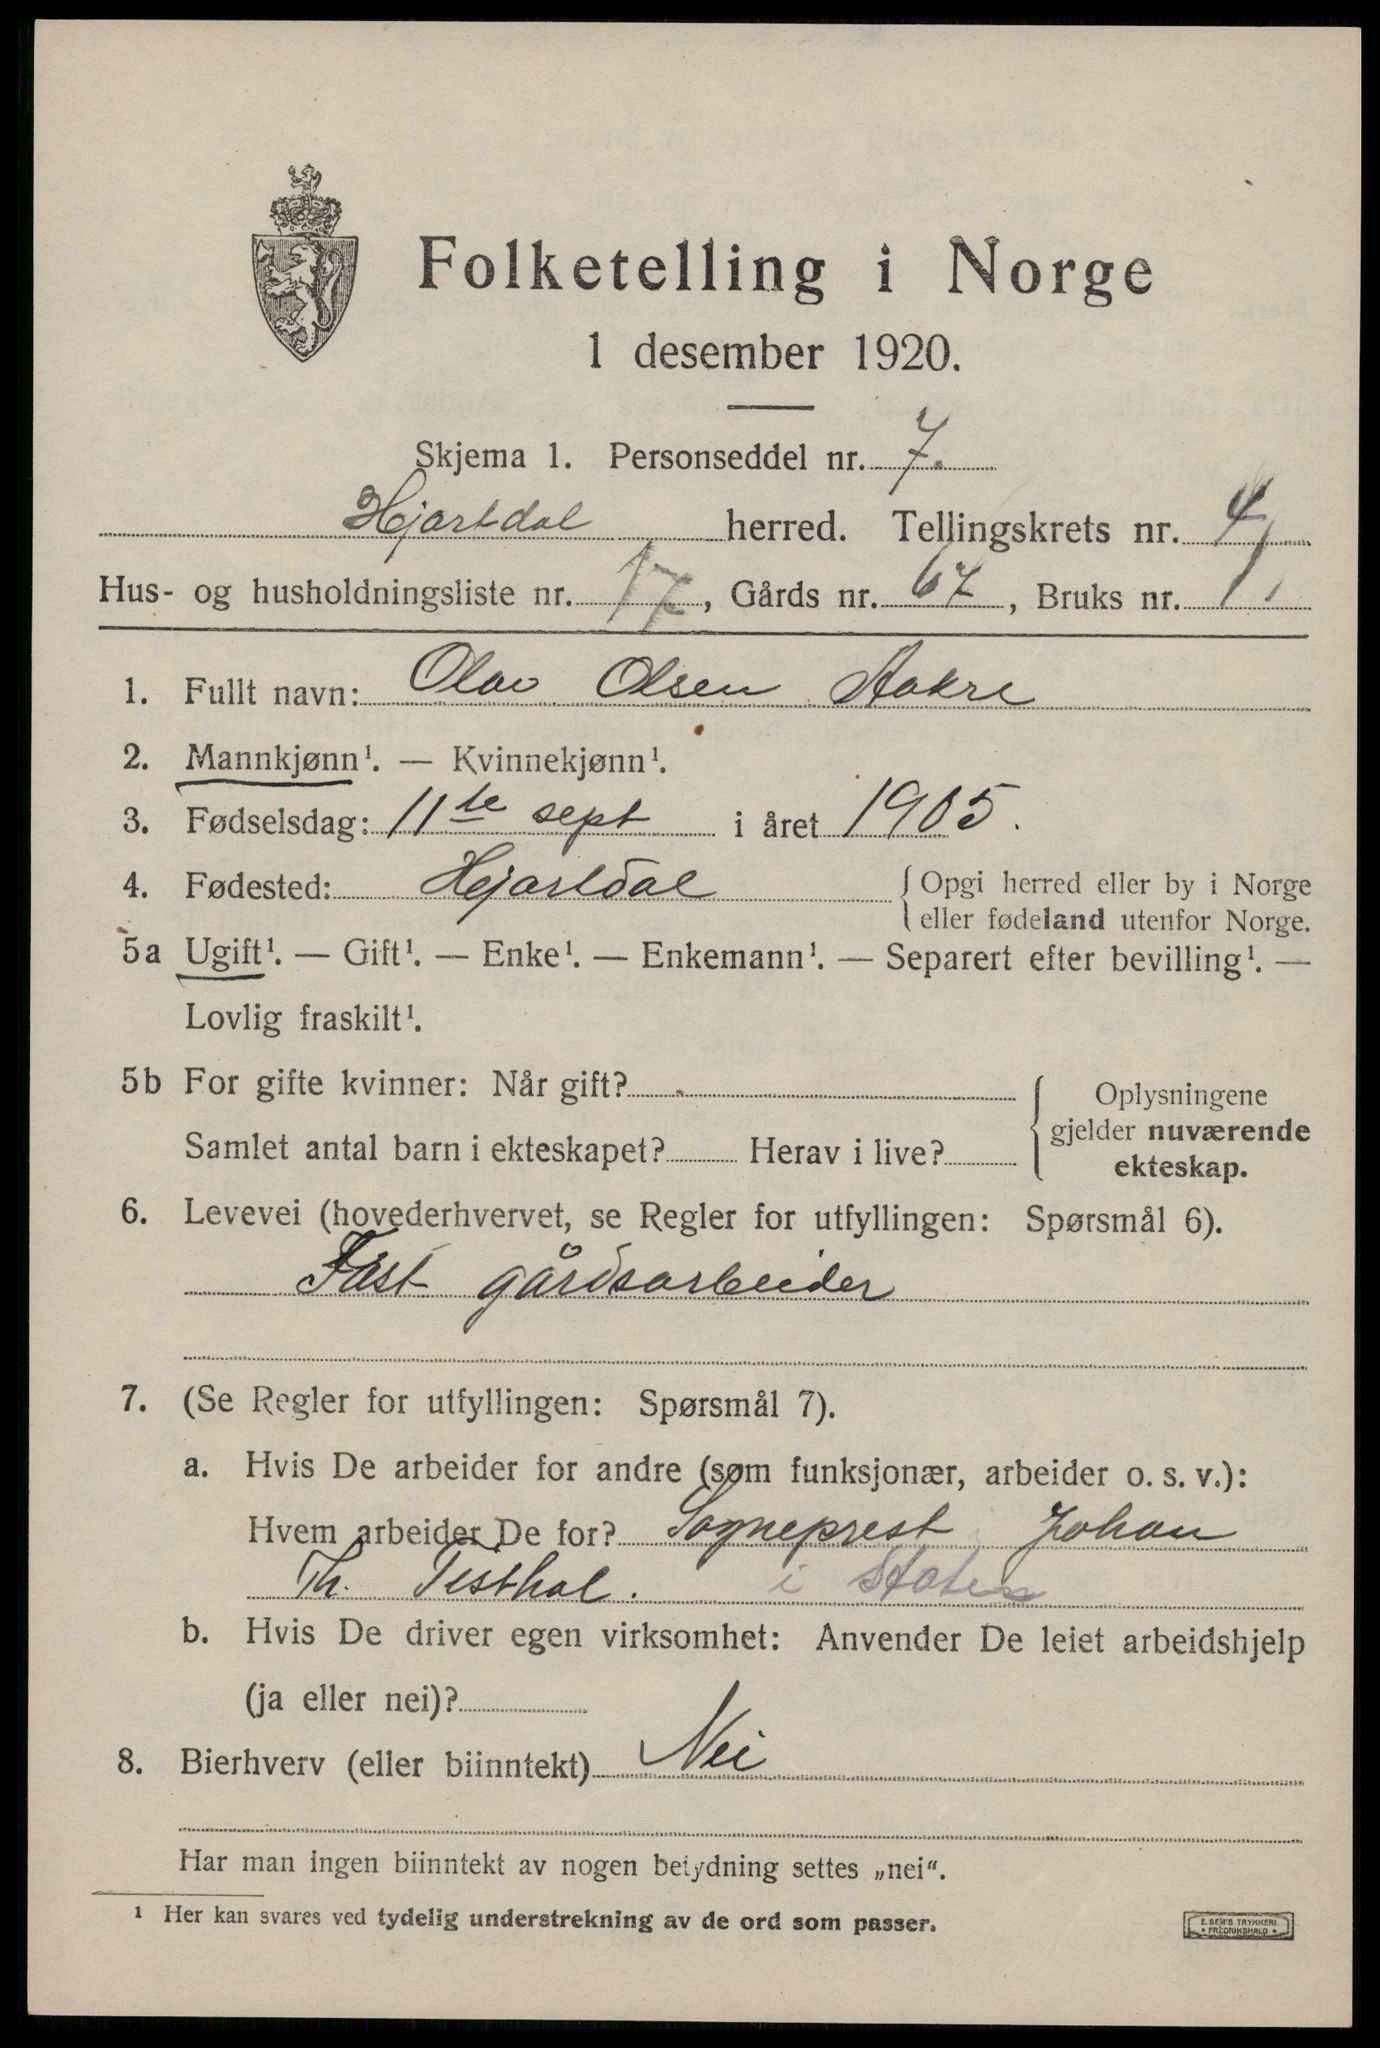 Folketelling i Norge
1 desember 1920.
Skjema 1. Personseddel nr. 7.
Hjartdal herred. Tellingskrets nr. 4
Hus- og husholdningsliste nr. 17, Gårds nr. 67, Bruks nr. 1.
1. Fullt navn: Olav Olsen Aakre
2. Mannkjønn¹. — Kvinnekjønn¹.
3. Fødselsdag: 11te sept i året 1905.
4. Fødested: Hjartdal {Opgi herred eller by i Norge
eller fødeland utenfor Norge.
5a Ugift¹. — Gift¹. — Enke¹. — Enkemann¹. — Separert efter bevilling¹. —
Lovlig fraskilt¹.
5b For gifte kvinner: Når gift?
Samlet antal barn i ekteskapet? Herav i live?
{Oplysningene
gjelder nuværende
ekteskap.
6. Levevei (hovederhvervet, se Regler for utfyllingen: Spørsmål 6).
Fast gårdsarbeider
7. (Se Regler for utfyllingen: Spørsmål 7).
a. Hvis De arbeider for andre (som funksjonær, arbeider o. s. v.):
Hvem arbeider De for? Sogneprest Johan
Th. Tisthal. i Staten
b. Hvis De driver egen virksomhet: Anvender De leiet arbeidshjelp
(ja eller nei)?
8. Bierhverv (eller biinntekt) Nei
Har man ingen biinntekt av nogen betydning settes „nei“.
¹ Her kan svares ved tydelig understrekning av de ord som passer.
E. SEM'S TRYKKERI
* FREDRIKSHALD *